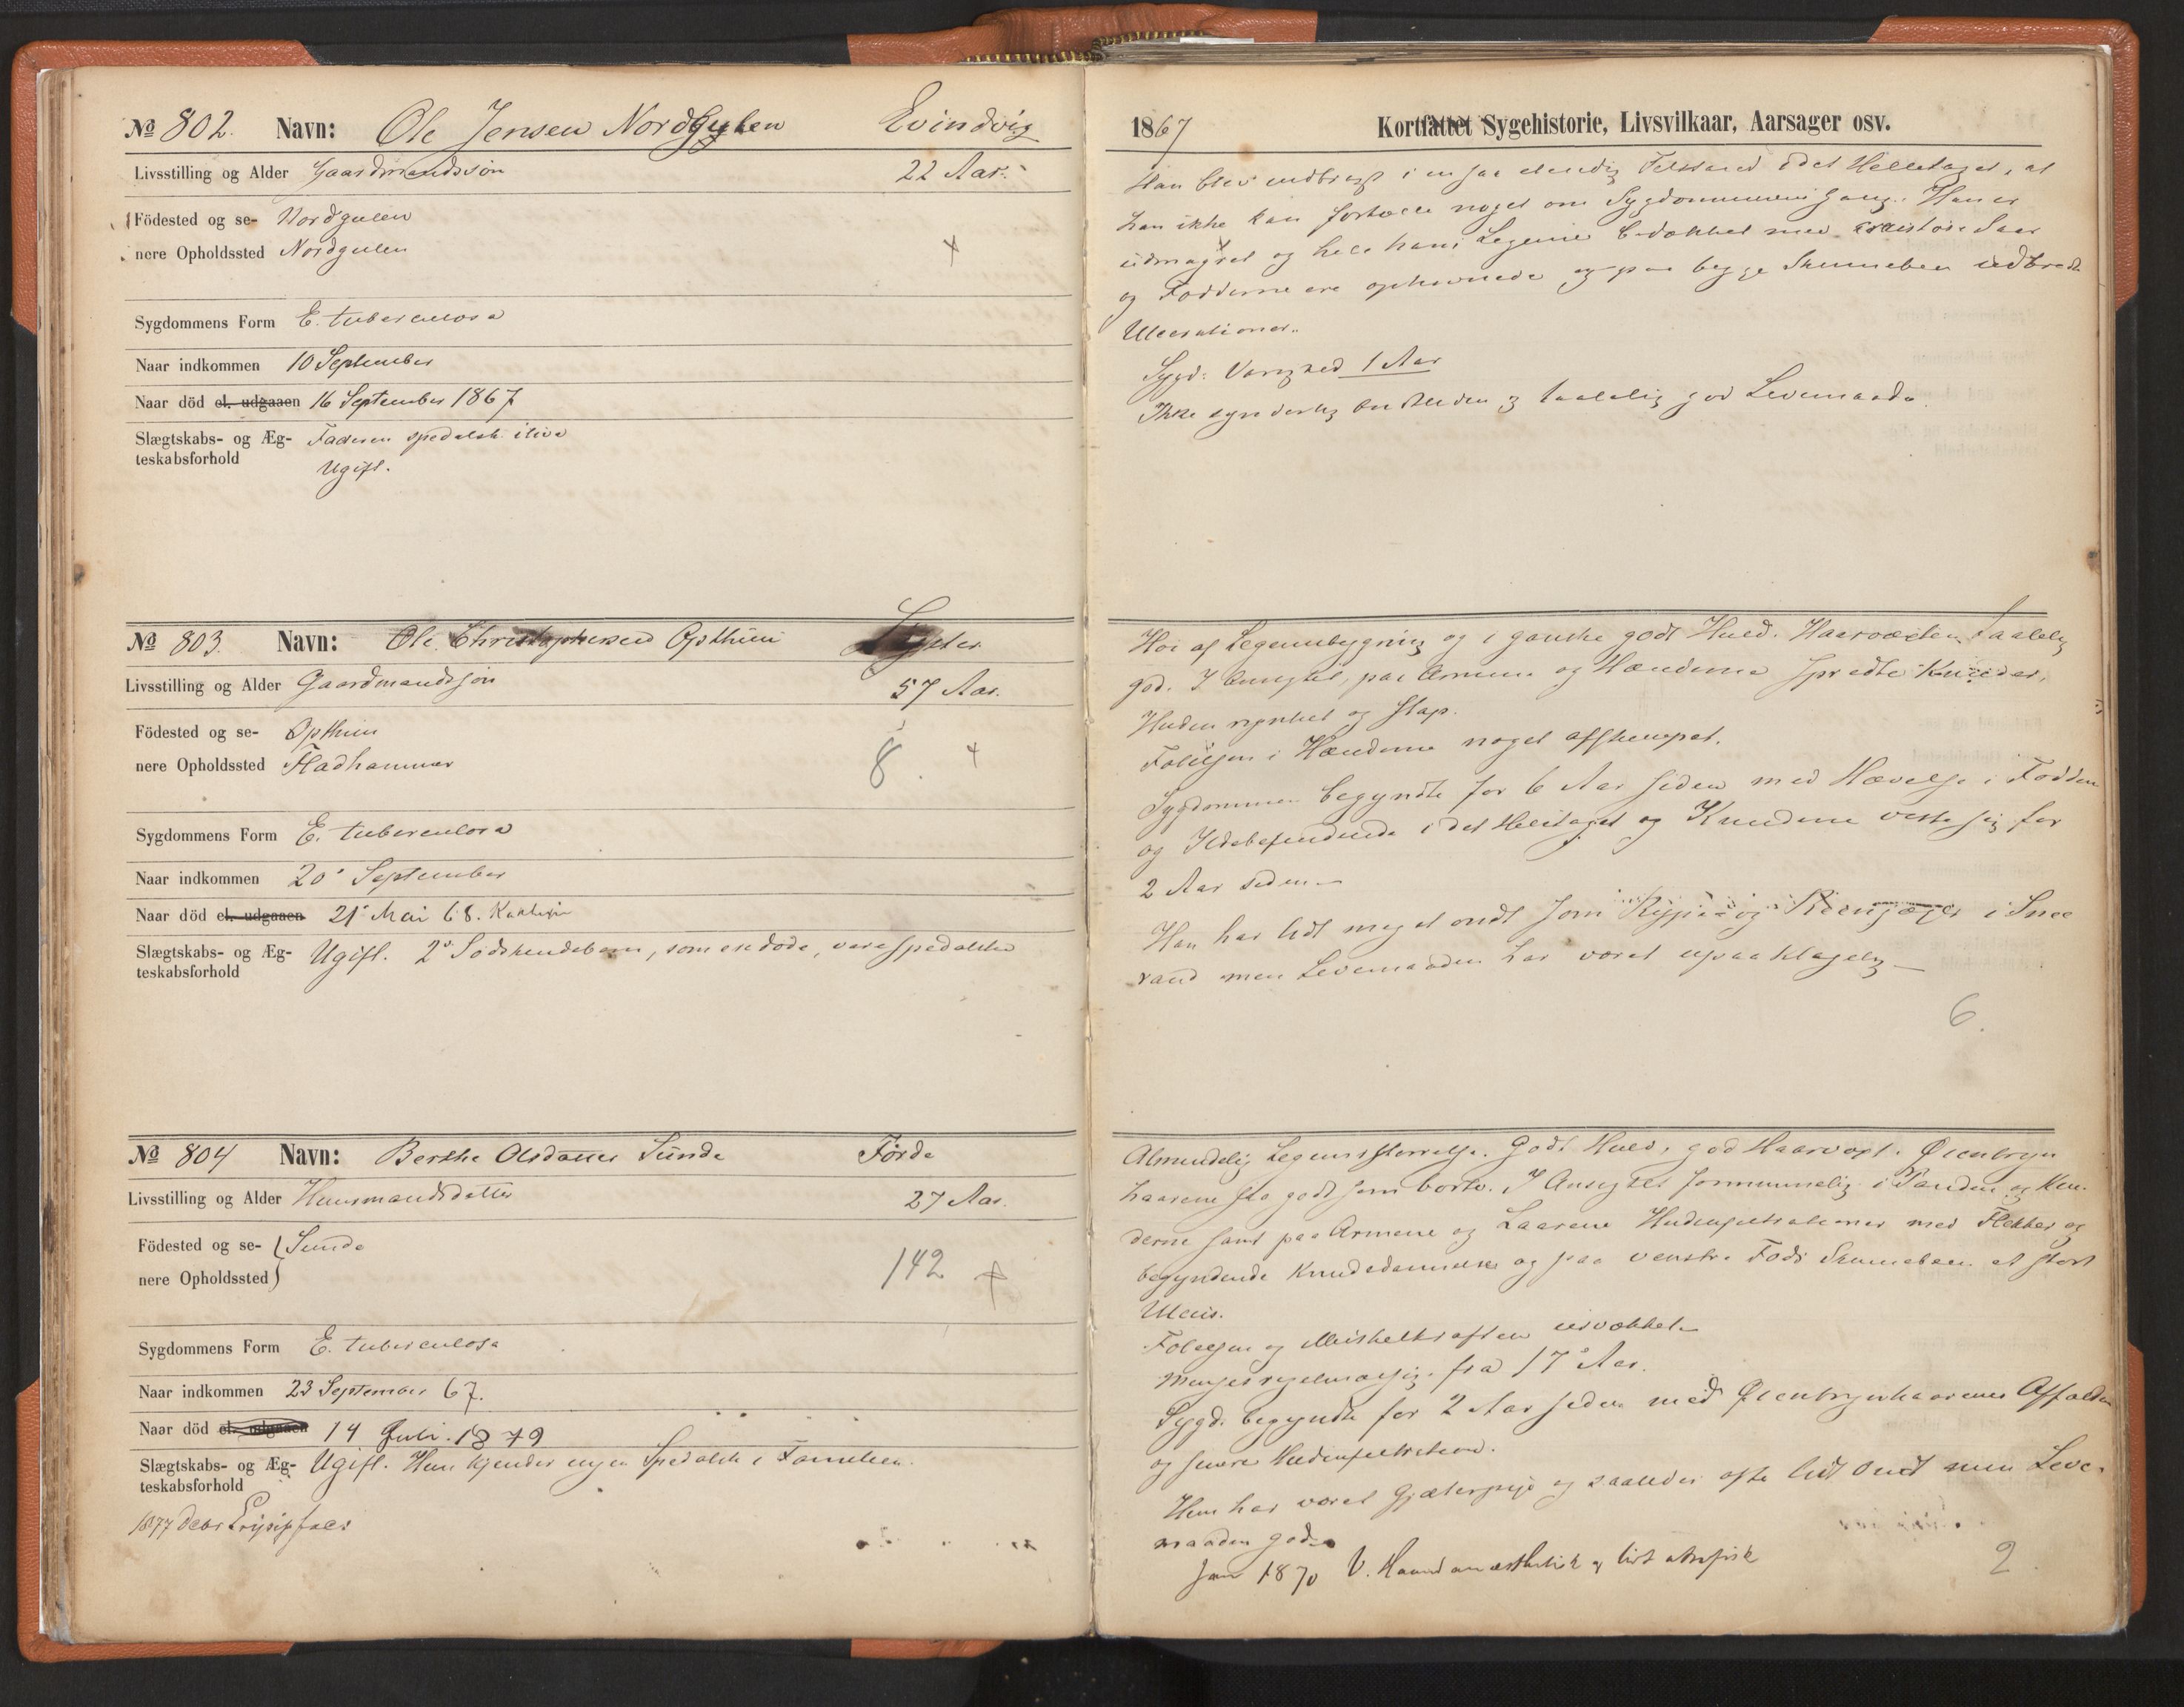 № 802. Navn: Ole Jensen Nordgulen Evindvig
Livsstilling og Alder Gaardmandssøn 22 Aar.
Födested og se- Nordgulen
nere Opholdssted Nordgulen
Sygdommens Form E. tuberculosa
Naar indkommen 10 September
Naar död el. udgaaen 16 September 1867
Slægtskabs- og Æg- Faderen spedalsk ilive
teskabsforhold Ugift.
№ 803. Navn: Ole Christophersen Opthun Lyster
Livsstilling og Alder Gaardmandssøn 57 Aar.
Födested og se- Opthun
nere Opholdssted Fladhammer 8.
Sygdommens Form E. tuberculosa
Naar indkommen 20 September
Naar död el. udgaaen 21 Mai 68.
Slægtskabs- og Æg- Ugift. 2 Södskendebørn, som ere døde, vare spedalske
teskabsforhold
№ 804 Navn: Berthe Olsdatter Sunde Førde
Livsstilling og Alder Huusmandsdatter 27 Aar.
Födested og se- Sunde
nere Opholdssted 142
Sygdommens Form E. tuberculosa
Naar indkommen 23 September 67.
Naar död el. udgaaen 14 Juli. 1879
Slægtskabs- og Æg- Ugift. Hun kjender ingen Spedalsk i Familien.
teskabsforhold
1877 Febr
1867 Kortfattet Sygehistorie, Livsvilkaar, Aarsager osv.
Han blev indbragt i en saa elendig Tilstand i det Heletaget, at
han ikke kan fortælle noget om Sygdommens Gang. Han er
udmagret og hele hans Legeme bedækket med Saar
og Fødderne ere ophovnede og paa begge Skinneben udbredte
Ulcerationer.
Sygd: Varighed 1 Aar
Ikke synderlig og taalelig god Levemaade.
Høi af Legemsbygning og i ganske godt Huld. Haarvæxten taalelig
god. I Ansigtet, paa Armene og Hænderne spredte Knuder,
Huden rynket og slap.
Følelsen i Hænderne noget afstumpet.
Sygdommen begyndte for 6 Aar siden med Hævelse i Fødderne
og Ildebefindende i det Heletaget og Knuderne viste sig for
2 Aar siden.
Han har lidt meget ondt som Rype og Reensjæger i Snee
vand men Levemaaden har været upaaklagelig
6.
Almindelig Legemsstørrelse. Godt Huld, god Haarvæxt. Øienbryn
haarene saa godt som borte. I Ansigtet fornemmelig i Panden og Kin-
derne samt paa Armene og Laarene Hudinfiltrationer med Flekker og
begyndende Knudedannelse og paa venstre Fods Skinneben et stort
Ulcus.
Følelsen og Muskelkraften usvækket
Menses regelmæssig fra 17 Aar.
Sygd: begyndte for 2 Aar siden med Øienbrynhaarenes Affalden
og senere Hudinfiltration.
Hun har været Gjæterpige og saaledes ofte lidt ondt men Leve-
maaden god.
Jan 1870 V. Haand anæsthetisk og lidt atrofisk
2